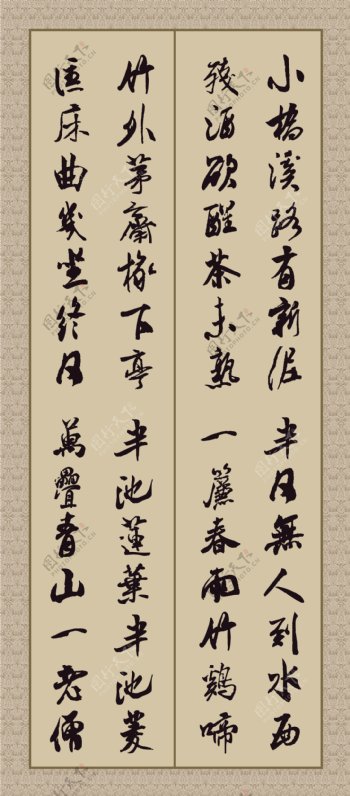 小橋溪路有新泥 半日無人到水西
殘酒欲醒茶未熟 一簾春雨竹鷄啼
竹外茅齋橡下亭 半池蓮葉半池菱
匡床曲几坐終日 萬疊青山一老僧